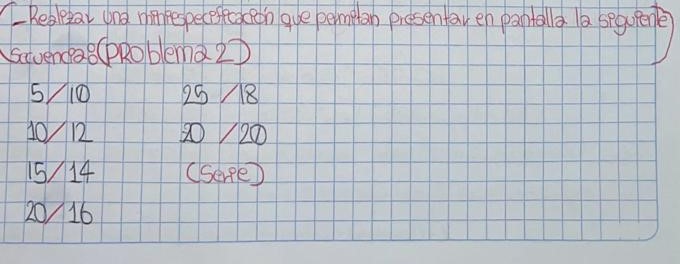 (-Realizar una miniespecificación que permitan presentar en pantalla la siguiente)
(Secuencia:(PROblema 2)
5/10
10/12
15/14
20/16
25/18
20/20
(Serie)